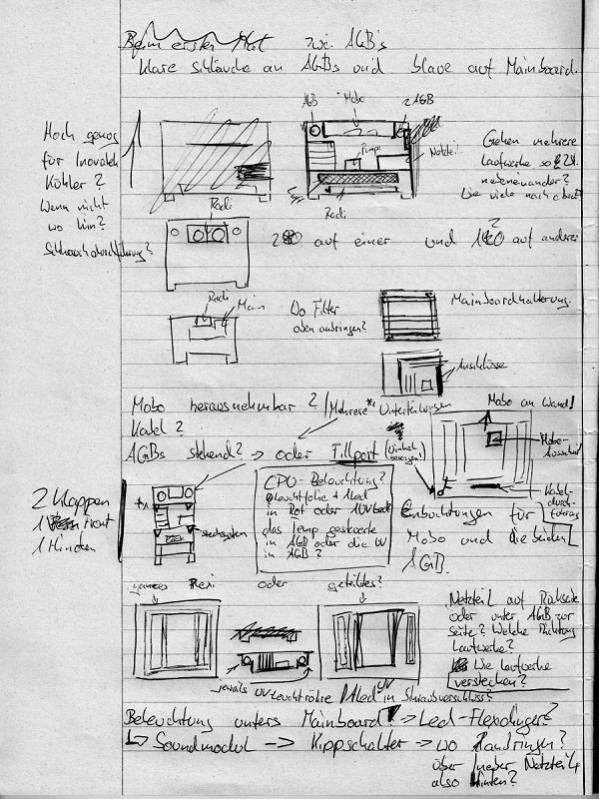 Beim ersten Mat zwei AGB's
klare schläuche an AGBs und blaue auf Mainboard.
AGB Mobo 2 AGB
Hoch genug
für Inovatek
Köhler?
Wenn nicht
wo hin?
Schlauchdurchführung?
Pumpe
Netzteil
Radi
Gehen mehrere
Laufwerke so
nebeneinander?
Wie viele
Radi
auf einer und auf anderer
Radi
Main
Wo Filter
oben anbringen?
Mainboardhalterung
Anschlüsse
Mobo herausnehmbar? Mehrere Unterteilungen
Mobo an Wand
Kabel?
AGBs stehend? -> oder Fillport
Mobo-
Ausschnitt
Kabel-
durch-
führung
2 Klappen
1 Front
1 Hinten
CPU-Beleuchtung?
Leuchtfolie + Led
in Rot oder
das Temp gesteuerte
in AGB oder die UV
in AGB?
Einbuchtungen für
Mobo und die beiden
AGB.
ganzes Plexi oder geteiltes?
Netzteil auf Rückseite
oder unter AGB zur
Seite? Welche Richtung
Laufwerke?
Wie Laufwerke
verstecken?
jeweils UV-Leuchtröhre
Beleuchtung unters Mainboard? -> Led-Flexdinger?
Soundmodul -> Kippschalter -> wo Ranbringen?
über Netzteil,
also Hinten?